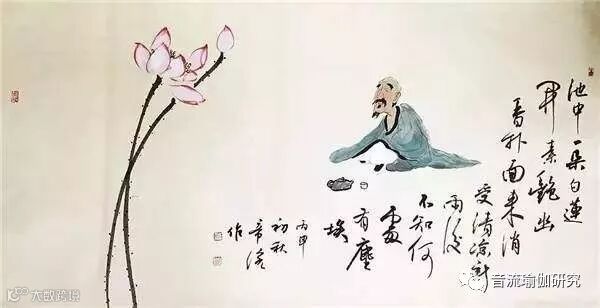 池中一朵白蓮
開素艷幽
香扑面来消
受清凉新
雨後
不知何
處
有塵
埃
丙申
初秋
作
大数跨境
音流瑜伽研究